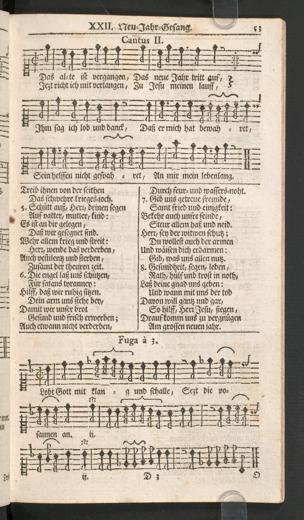 XXII. Neu-Jahr-Gesang. 53
Cantus II.
Das al-te ist vergangen, Das neue Jahr tritt auf,
Jezt richt ich mit verlangen, Zu Jesu meinen lauff,
Ihm sag ich lob und danck, Daß er mich hat bewah- ret,
Sein helffen nicht gespah- ret, An mir mein lebenlang.
Treib ihnen von der seithen
Das schwerdter kriegs-joch.
5. Schütt auß, Herr, deinen segen
Auf vatter, mutter, kind:
Es ist an dir gelegen,
Daß wir gesegnet sind.
Wehr allem krieg und streit:
Herr, wende das verderben,
Auch pestilentz und sterben,
Zusamt der theuren zeit.
6. Die engel laß uns schützen,
Für satans tyranney:
Hilff, daß wir ruhig sitzen,
Dein arm uns stehe bey,
Damit wir unser brot
Gesund und frisch erwerben;
Auch etwann nicht verderben,
Durch feur- und wassers-noht.
7. Gib uns getreue freunde,
Samt fried und einigkeit:
Bekehr auch unsre feinde,
Steur allem haß und neid.
Herr, sey der witwen schutz;
Du wollest auch der armen
Und wäisen dich erbarmen:
Gib, was uns allen nutz.
8. Gesundheit, segen, leben,
Raht, hülf und trost in noth,
Laß deine gnad uns geben:
Und wann mit uns der tod
Davon will gäntz und gar,
So hilff, Herr Jesu, siegen,
Drauf komm uns zu vergnügen
Am grossen neuen jahr.
Fuga à 3.
Lobt Gott mit klan- g und schalle, Sezt die po-
saunen an. ij.
ij. D 3